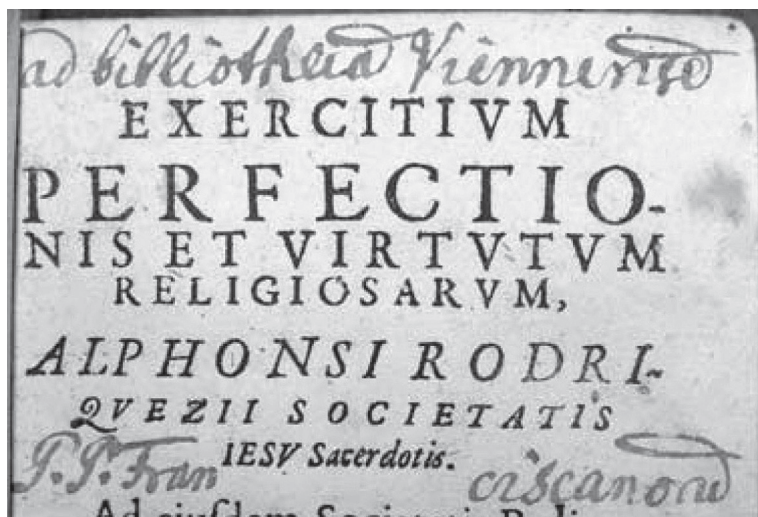 ad bibliothecã Viennensẽ
EXERCITIVM
PERFECTIO-
NIS ET VIRTVTVM
RELIGIOSARVM,
ALPHONSI RODRI-
QVEZII SOCIETATIS
IESV Sacerdotis.
P.P. Fran ciscanorũ
Ad eiuſdem Societatis